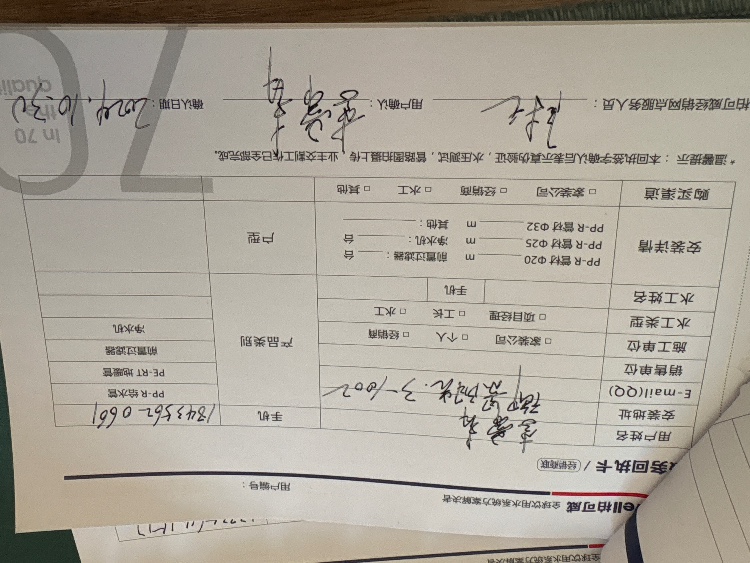 全球饮用水系统方案解决者
ell柏可威 全球饮用水系统方案解决者
用户编号：
务回执卡 / 经销商联
用户姓名 手机
安装地址 PP-R 给水管
E-mail(QQ) PE-RT 地暖管
销售单位 前置过滤器
施工单位 □ 家装公司 □ 个人 □ 经销商 产品类别 净水机
水工类型 □ 项目经理 □ 工长 □ 水工
水工姓名 手机
安装详情 PP-R 管材 Φ20 m 前置过滤器： 台 户型
PP-R 管材 Φ25 m 净水机： 台
PP-R 管材 Φ32 m 其他：
购买渠道 □ 家装公司 □ 经销商 □ 水工 □ 其他
* 温馨提示：本回执签字确认后表示真伪验证，水压测试，管路图拍摄上传，业主交割工作已全部完成。
柏可威经销网点服务人员： 用户确认： 确认日期：2024.10.30
In 70
the
quali
70